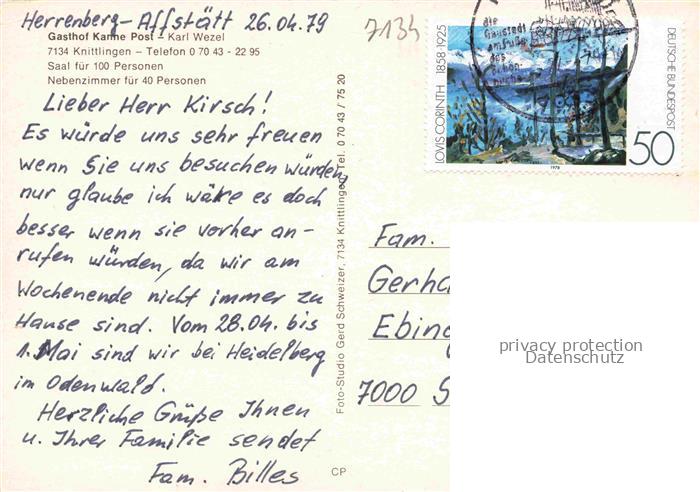 Herrenberg-Affstätt 26.04.79
7134
Gasthof Kanne Post – Karl Wezel
7134 Knittlingen – Telefon 0 70 43 - 22 95
Saal für 100 Personen
Nebenzimmer für 40 Personen
Lieber Herr Kirsch!
Es würde uns sehr freuen
wenn Sie uns besuchen würden,
nur glaube ich wäre es doch
besser wenn sie vorher an-
rufen würden, da wir am
Wochenende nicht immer zu
Hause sind. Vom 28.04. bis
1. Mai sind wir bei Heidelberg
im Odenwald.
Herzliche Grüße Ihnen
u. Ihrer Familie sendet
Fam. Billes
Foto-Studio Gerd Schweizer, 7134 Knittlingen, Tel. 0 70 43 / 75 20
CP
LOVIS CORINTH 1858-1925
DEUTSCHE BUNDESPOST
50
1978
die
Gäustadt
am Fuße
des
Schön-
buchs
Fam.
Gerha
Ebing
7000 S
privacy protection
Datenschutz